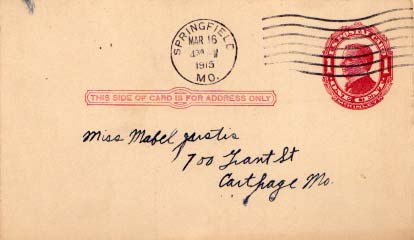 SPRINGFIELD
MAR 16
1915
MO.
THIS SIDE OF CARD IS FOR ADDRESS ONLY
Miss Mabel
700 Grant St
Carthage Mo.